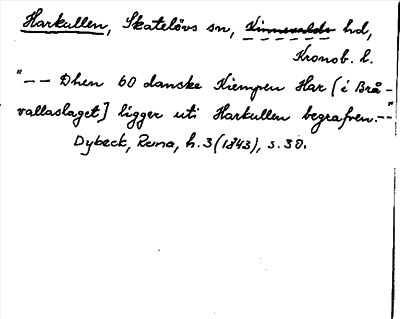 Harkullen, Skatelövs sn, Kinnevalds hd,
Kronob. l.
"-- Dhen 60 danske Kiempen Har [i Brå-
vallaslaget] ligger uti Harkullen begrafven.--"
Dybeck, Runa, h. 3 (1843), s. 30.